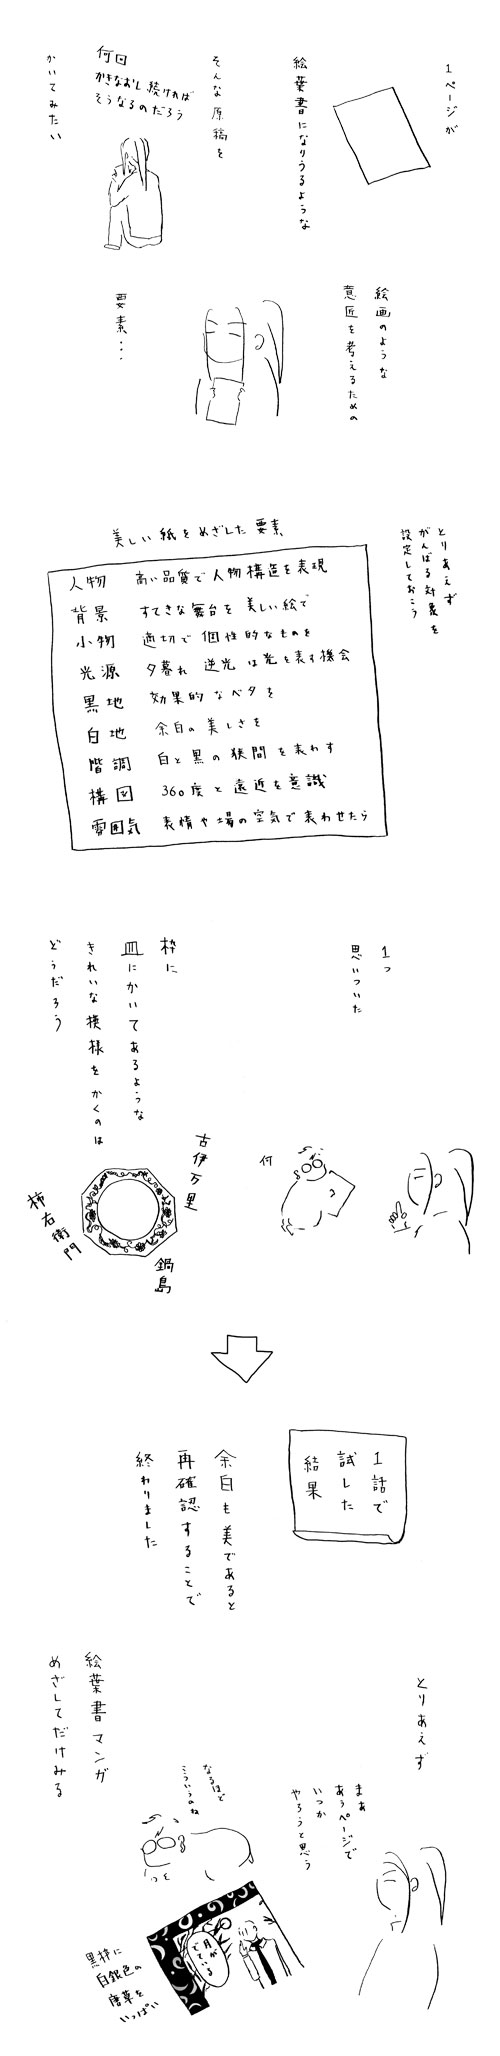 1ページが
絵葉書になりうるような
そんな原稿を
何回
かきなおし続ければ
そうなるのだろう
かいてみたい
絵画のような
意匠を考えるための
要素・・・
とりあえず
がんばる対象を
設定しておこう
美しい紙をめざした要素
人物 高い品質で人物構造を表現
背景 すてきな舞台を美しい絵で
小物 適切で個性的なものを
光源 夕暮れ 逆光 は光を表す機会
黒地 効果的なベタを
白地 余白の美しさを
階調 白と黒の狭間を表わす
構図 360度と遠近を意識
雰囲気 表情や場の空気で表わせたら
1つ
思いついた
何
枠に
皿にかいてあるような
きれいな模様をかくのは
どうだろう
古伊万里
鍋島
柿右衛門
1話で
試した
結果
余白も美であると
再確認することで
終わりました
とりあえず
まあ
あうページで
いつか
やろうと思う
なるほど
こういうのね
絵葉書マンガ
めざしてだけみる
月が
でている
黒枠に
白銀色の
唐草を
いっぱい